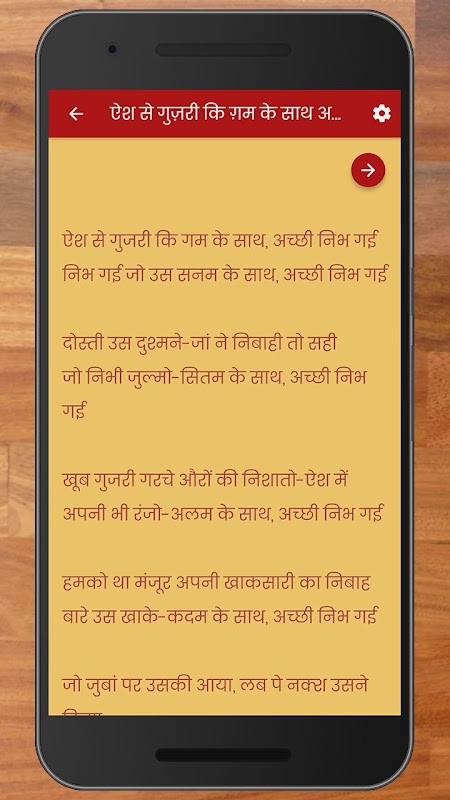 ऐश से गुज़री कि ग़म के साथ अ...
ऐश से गुजरी कि गम के साथ, अच्छी निभ गई
निभ गई जो उस सनम के साथ, अच्छी निभ गई
दोस्ती उस दुश्मने-जां ने निबाही तो सही
जो निभी जुल्मो-सितम के साथ, अच्छी निभ
गई
खूब गुजरी गरचे औरों की निशातो-ऐश में
अपनी भी रंजो-अलम के साथ, अच्छी निभ गई
हमको था मंजूर अपनी खाकसारी का निबाह
बारे उस खाके-कदम के साथ, अच्छी निभ गई
जो जुबां पर उसकी आया, लब पे नक्श उसने